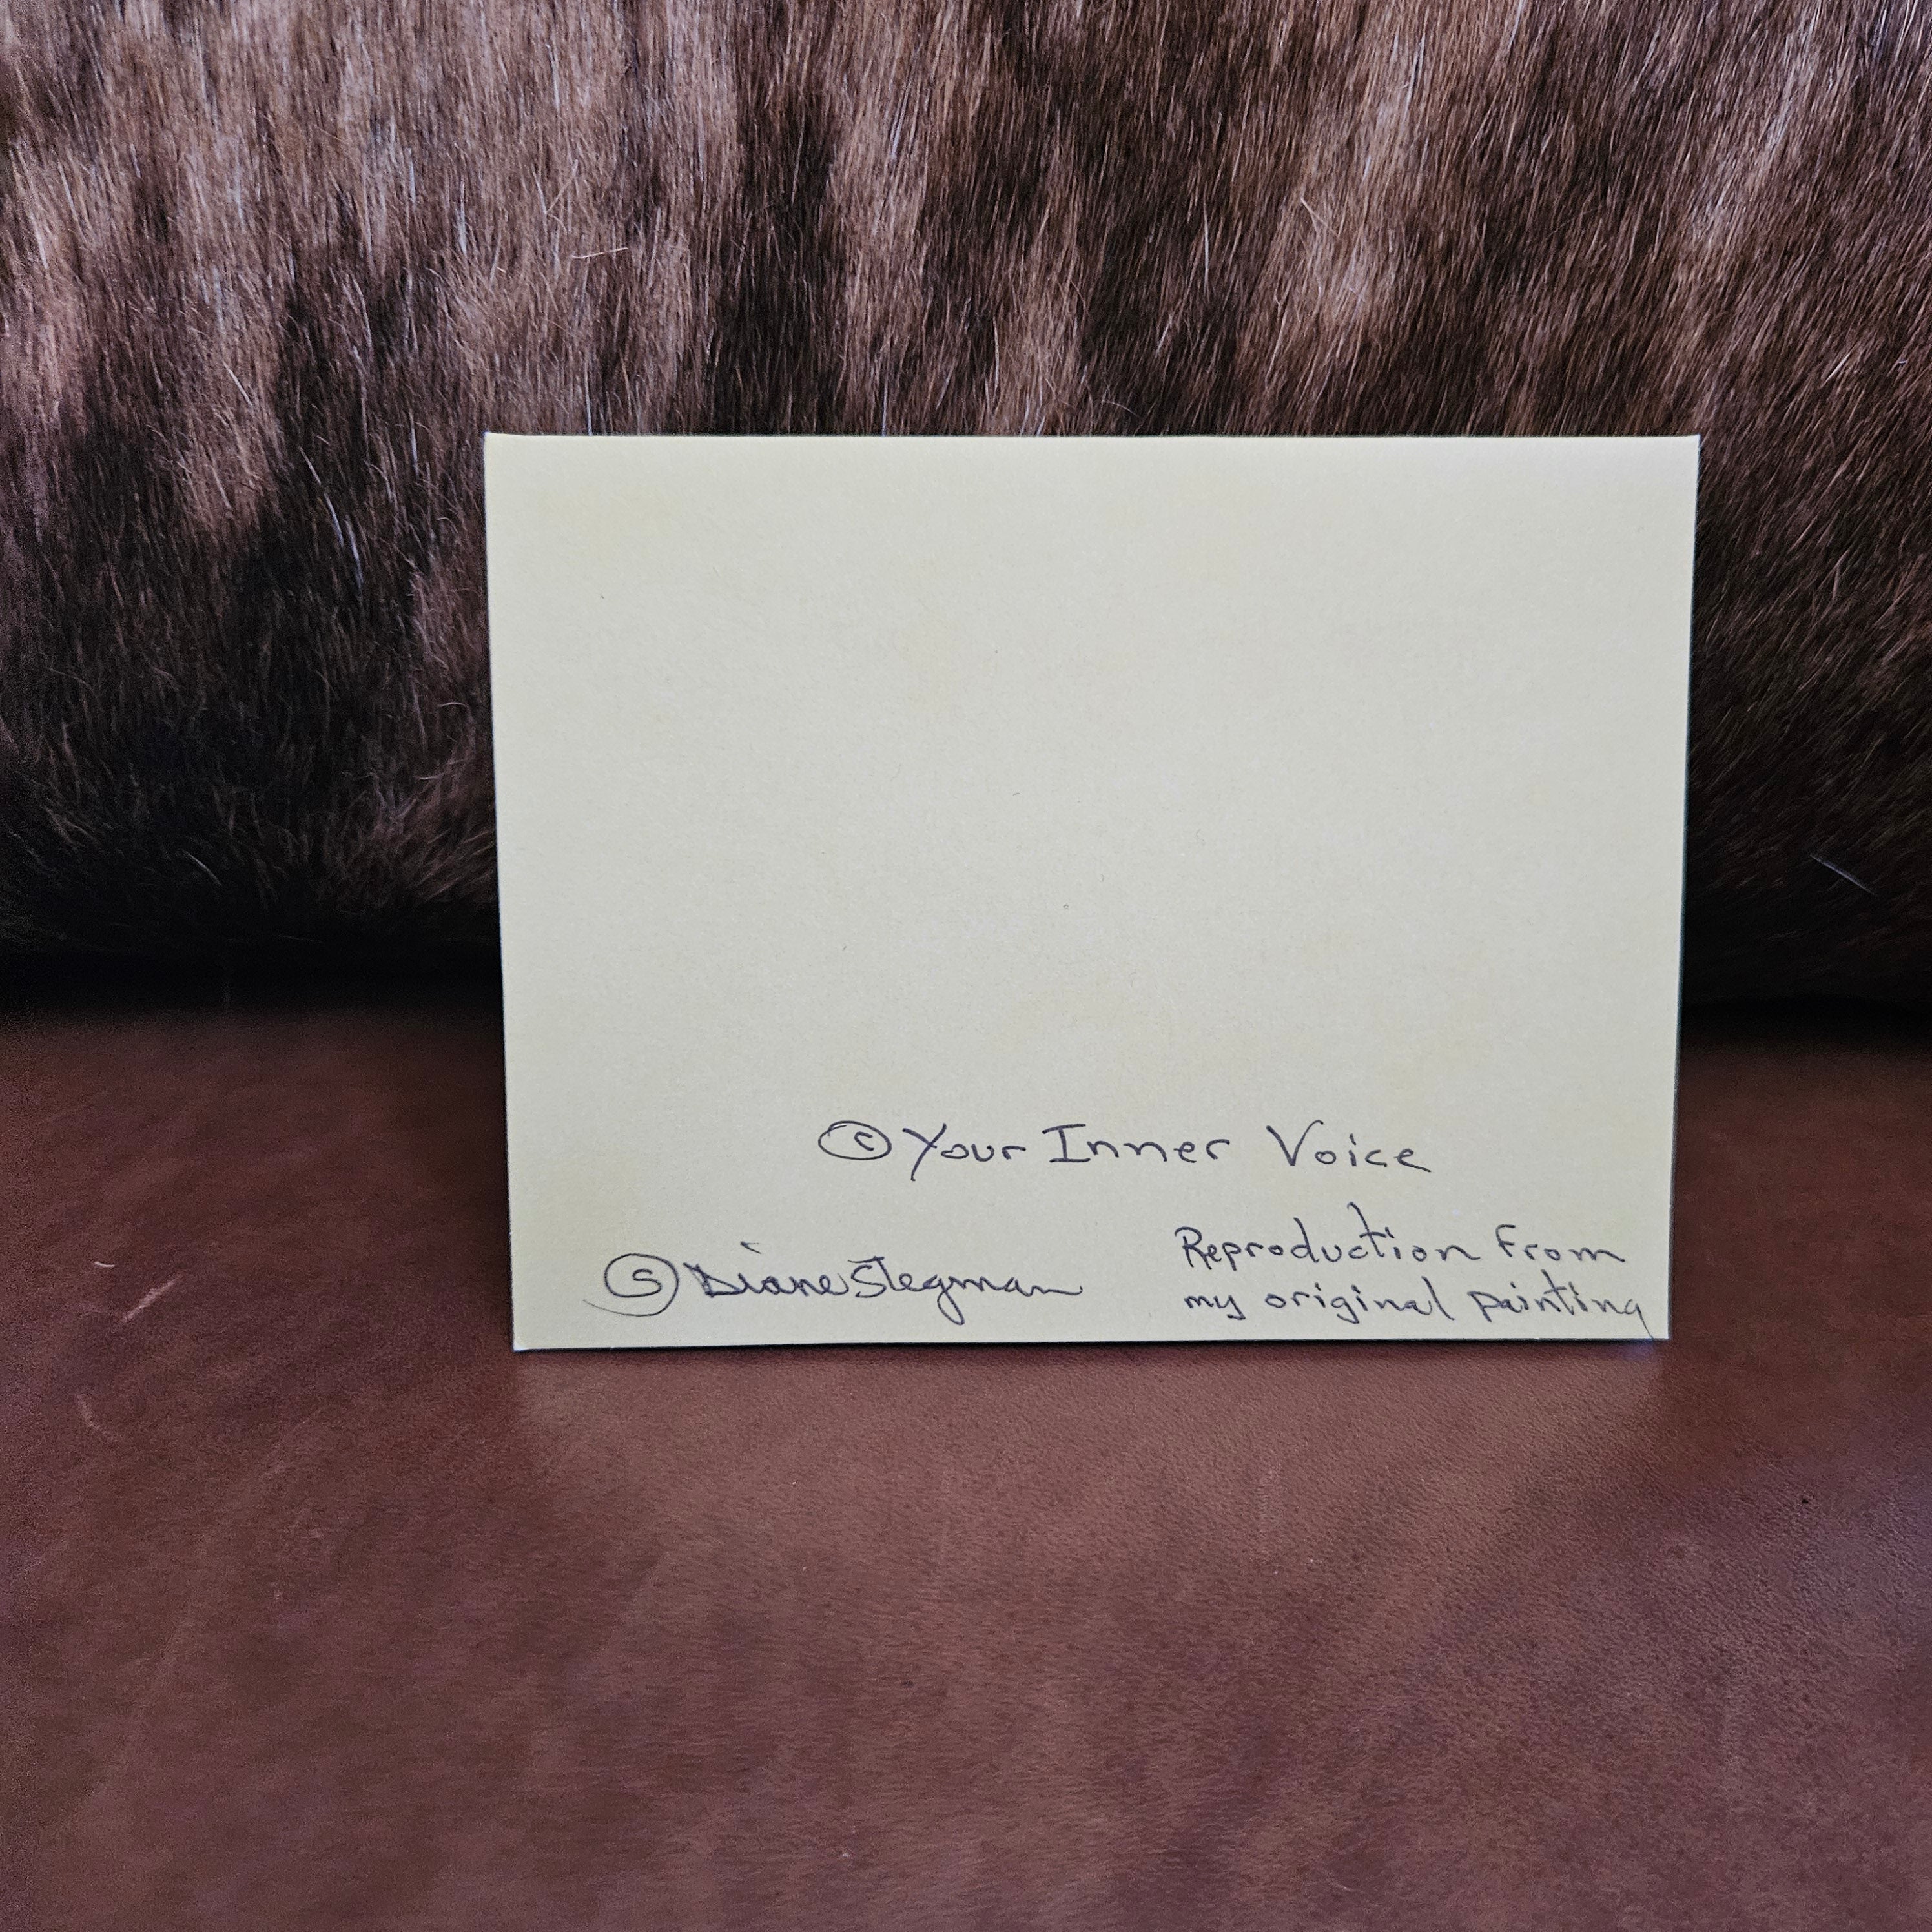 © Your Inner Voice
Ⓢ Diane Stegman
Reproduction from
my original painting